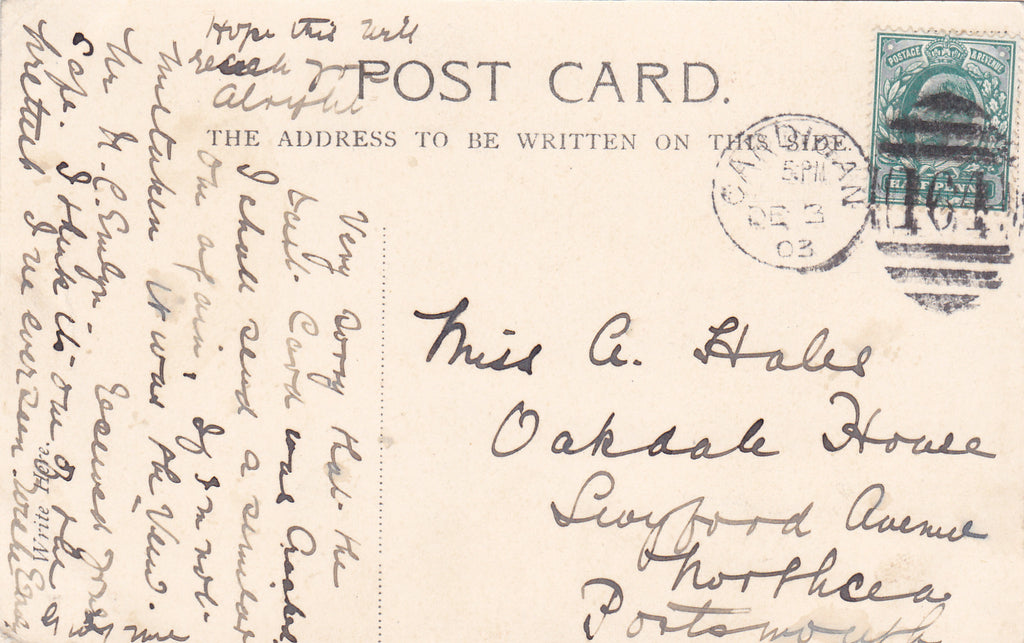 Hope this will
reach you
Alright
POST CARD.
THE ADDRESS TO BE WRITTEN ON THIS SIDE.
POSTAGE & REVENUE
HALFPENNY
CARDIGAN
5 PM
DE 3
03
164
Miss A. Hales
Oakdale House
Avenue
Northsea
Portsmouth
Very sorry that the
last Card was Cracked
I shall send a similar
one again, If I'm not
mistaken it was the View.
to N. C. Emlyn. Received yours
safe. I think its one of the
prettiest I've ever seen.
Write Here